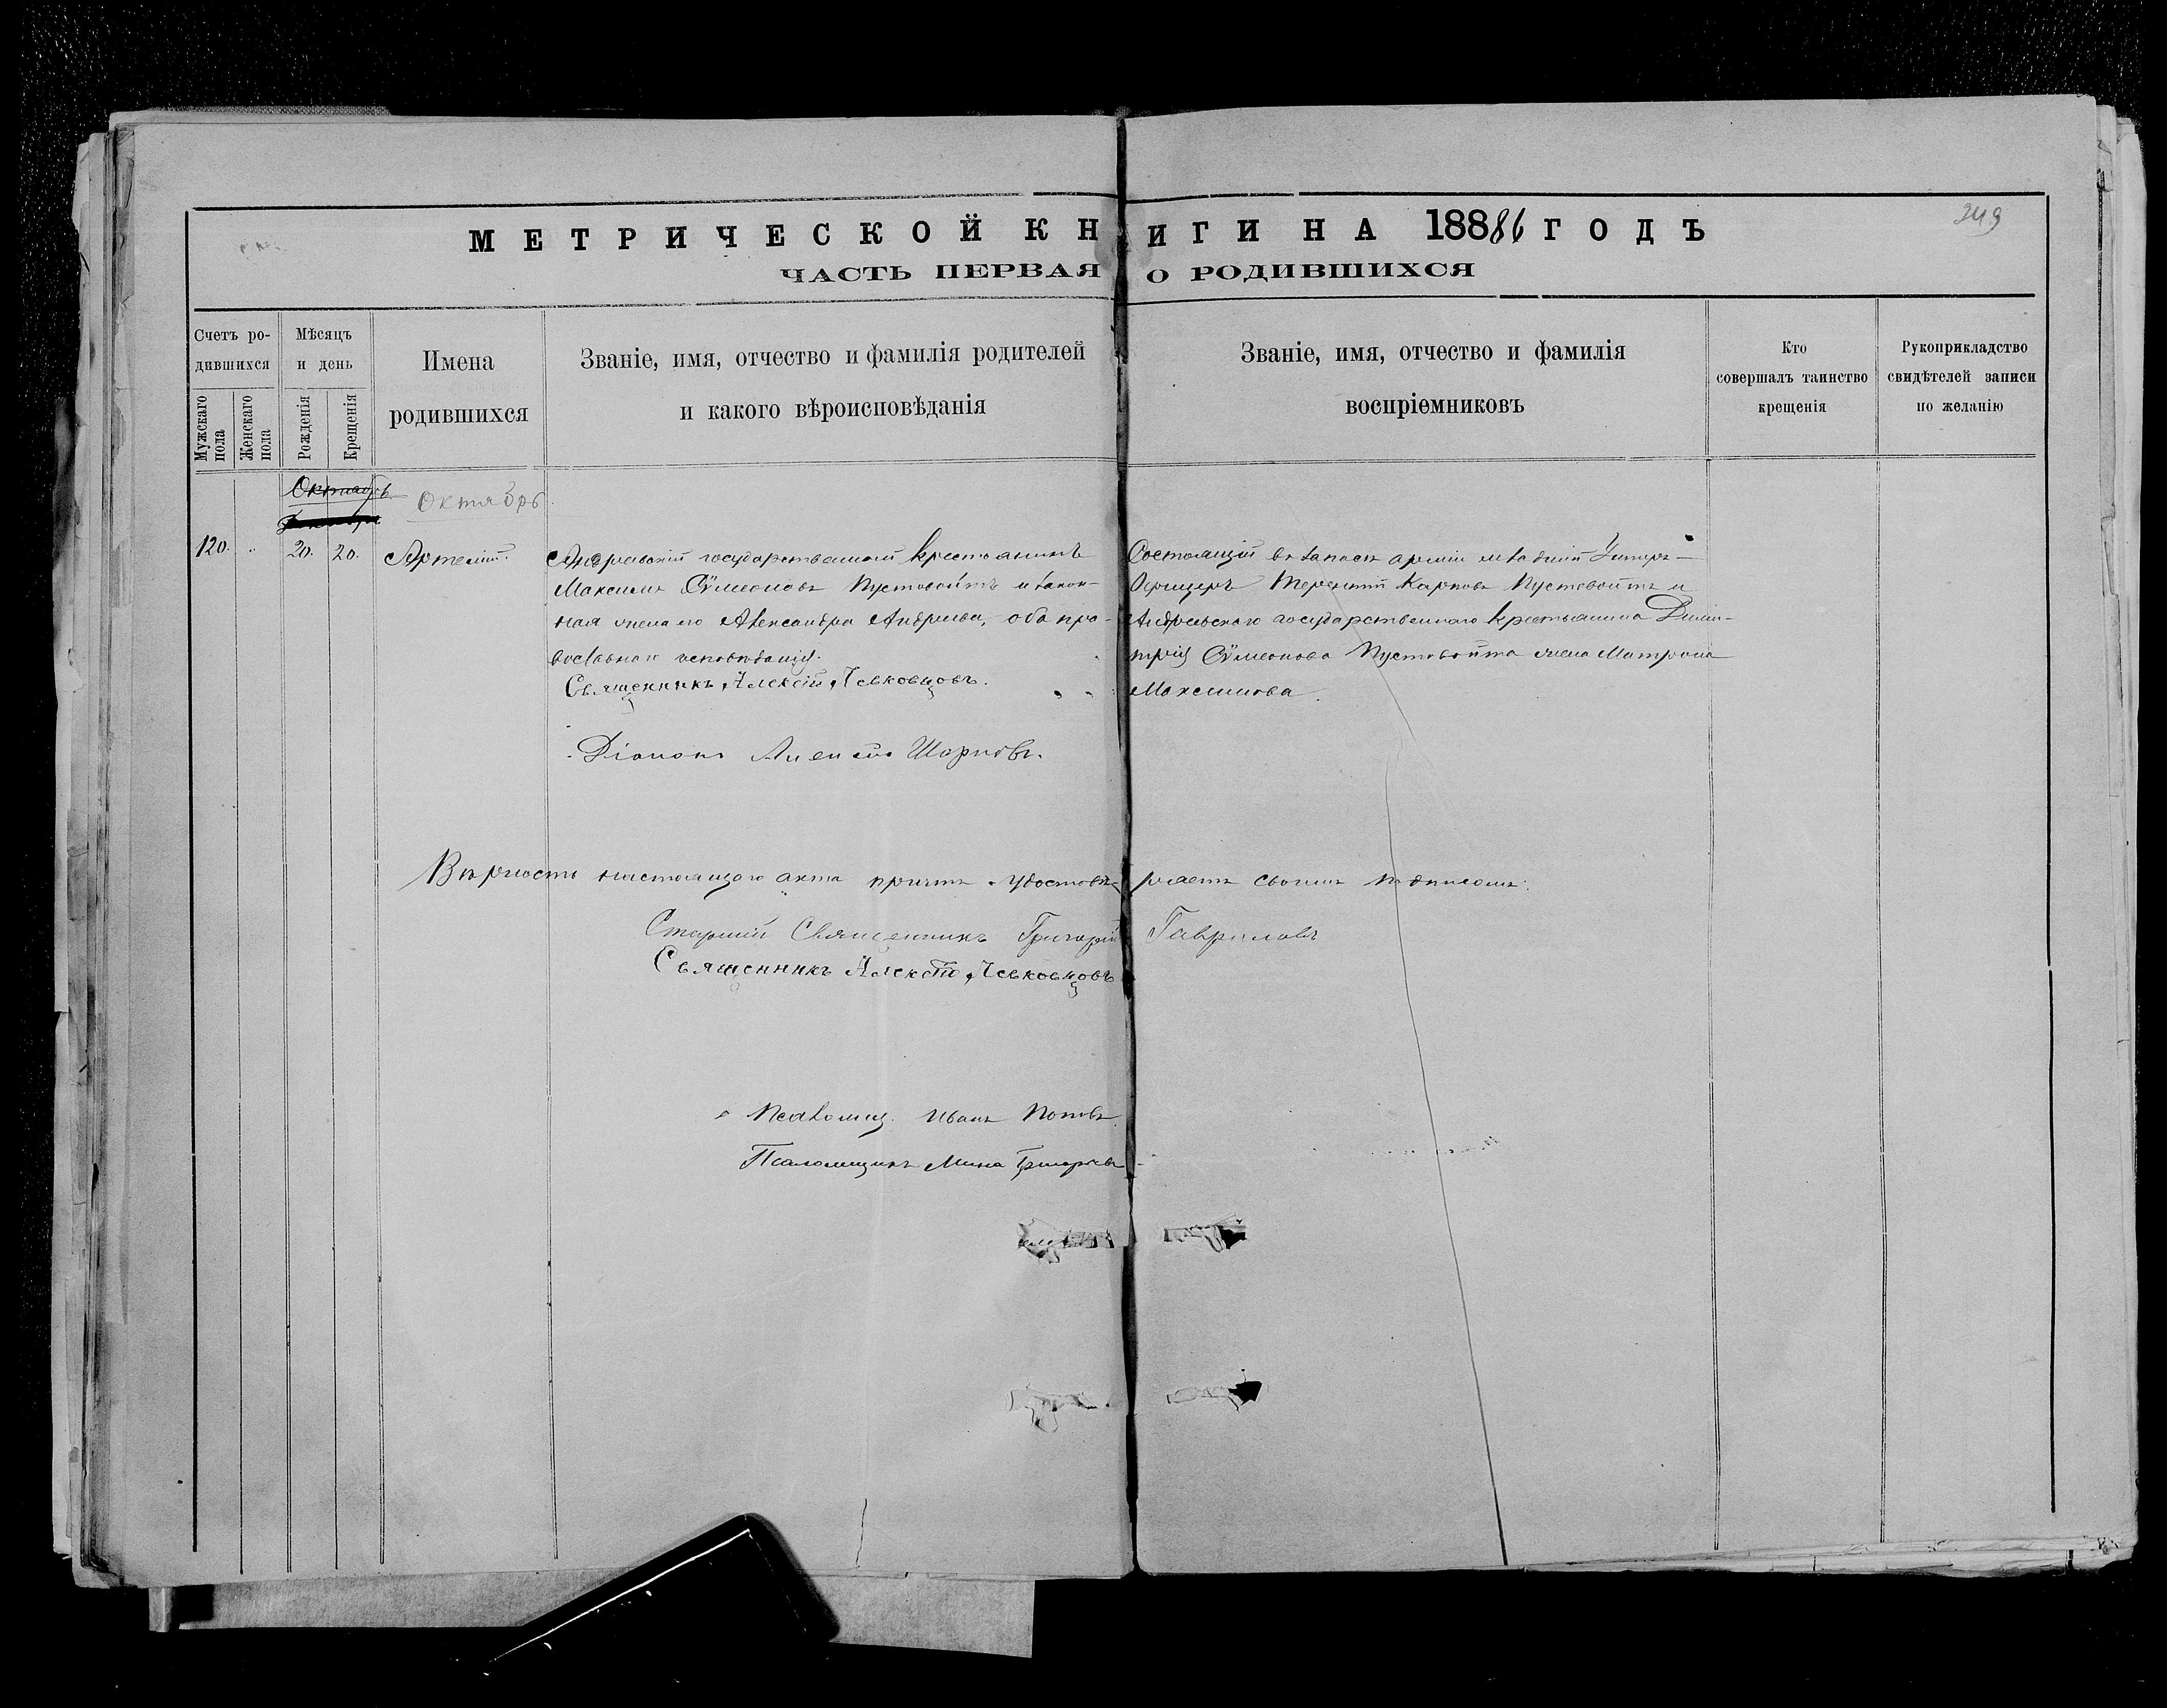 МЕТРИЧЕСКОЙ КНИГИ НА 18886 ГОДЪ
249
ЧАСТЬ ПЕРВАЯ О РОДИВШИХСЯ
Счетъ ро-
дившихся
Мужскаго пола
Женскаго пола
Мѣсяцъ
и день
Рожденія
Крещенія
Имена
родившихся
Званіе, имя, отчество и фамилія родителей
и какого вѣроисповѣданія
Званіе, имя, отчество и фамилія
воспріемниковъ
Кто
совершалъ таинство
крещенія
Рукоприкладство
свидѣтелей записи
по желанію
Октябрь
Октябрь
120. 20. 20. Артемій.
Андреевскій государственный крестьянинъ
Максимъ Сѵмеоновъ Пустовойтъ и закон-
ная жена его Александра Андреева, оба пра-
вославнаго исповѣданія.
Священникъ Алексій Левковцовъ.
Діаконъ Алексѣй
Состоящій въ запасѣ арміи младшій Унтеръ-
Офицеръ Терентій Карповъ Пустовойтъ и
Андреевскаго государственнаго крестьянина Дими-
трія Сѵмеонова Пустовойта жена Матрона
Максимова.
Вѣрность настоящаго акта причтъ удостовѣряетъ своимъ подписомъ:
Старшій Священникъ Григорій Гавриловъ
Священникъ Алексій Левковцовъ
Псаломщ. Иванъ Поповъ.
Псаломщикъ Мина Григорьевъ